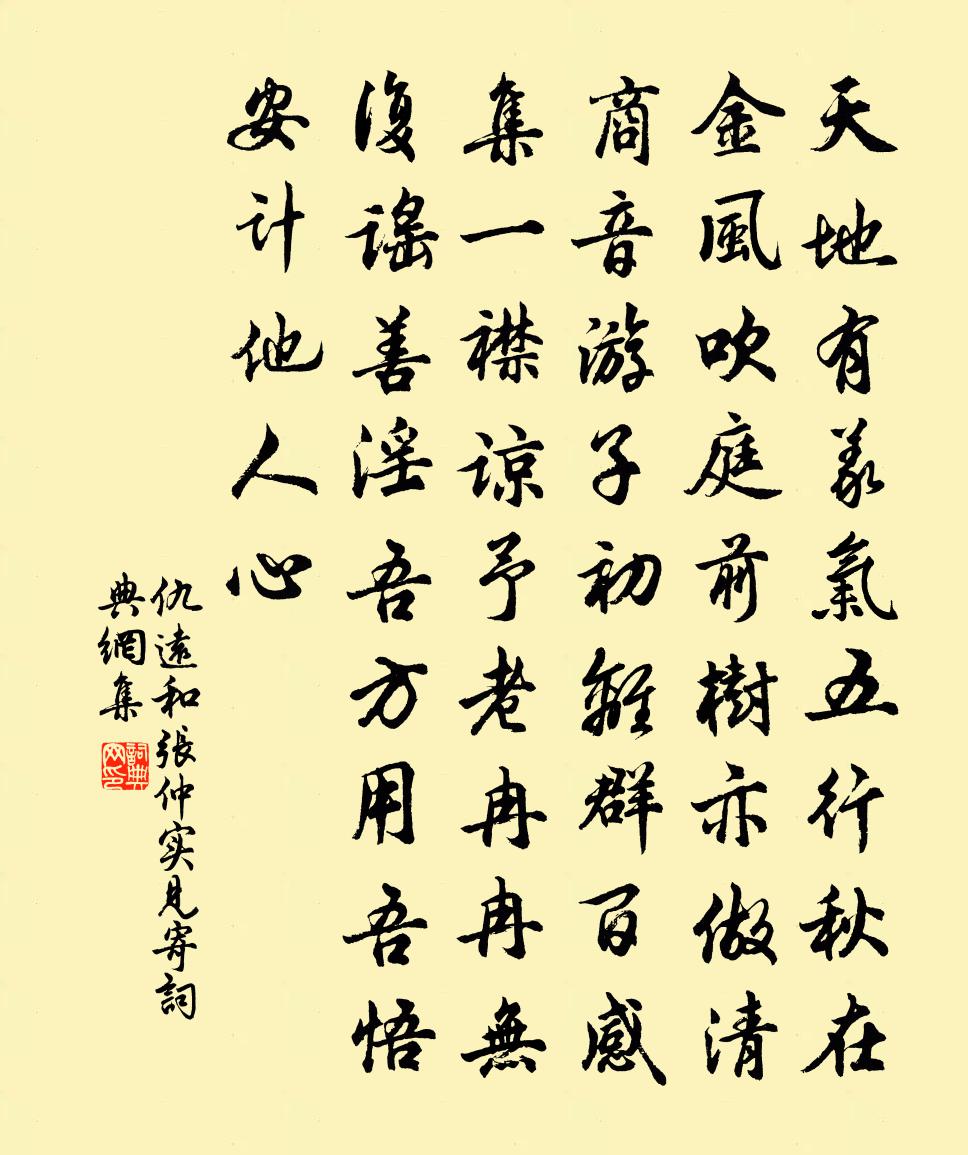 天地有義氣五行秋在
金風吹庭前樹亦做清
商音游子初離群百感
集一襟諒予老冉冉無
復謠善淫吾方用吾悟
安计他人心
仇遠和張仲实見寄詞
典網集
詞典網印